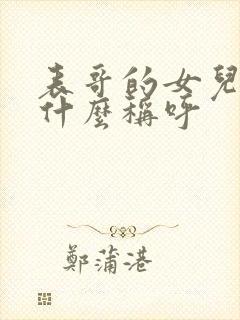 表哥的女兒
什麼稱呼
鄭蒲港